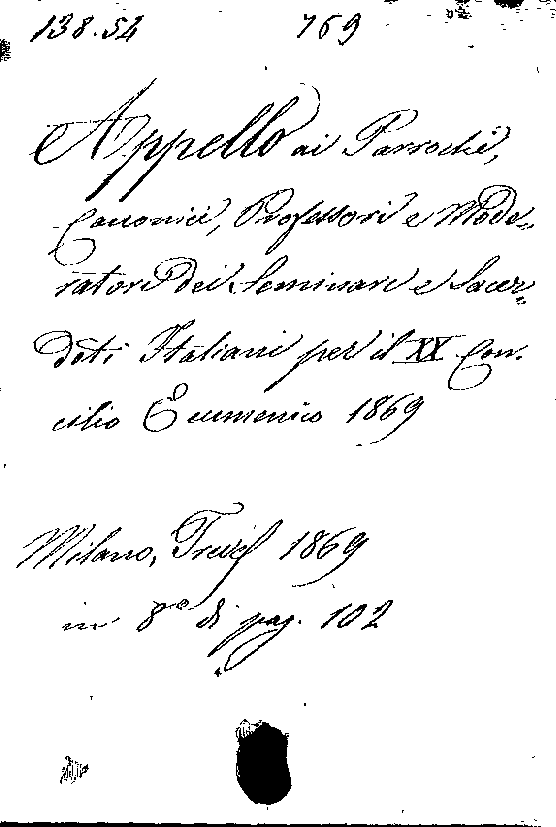 138.54 769
Appello ai Parrochi,
Canonici, Professori e Mode-
ratori dei Seminari e Sacer-
doti Italiani per il XX Con-
cilio Ecumenico 1869
Milano, Treves 1869
in 8° di pag. 102